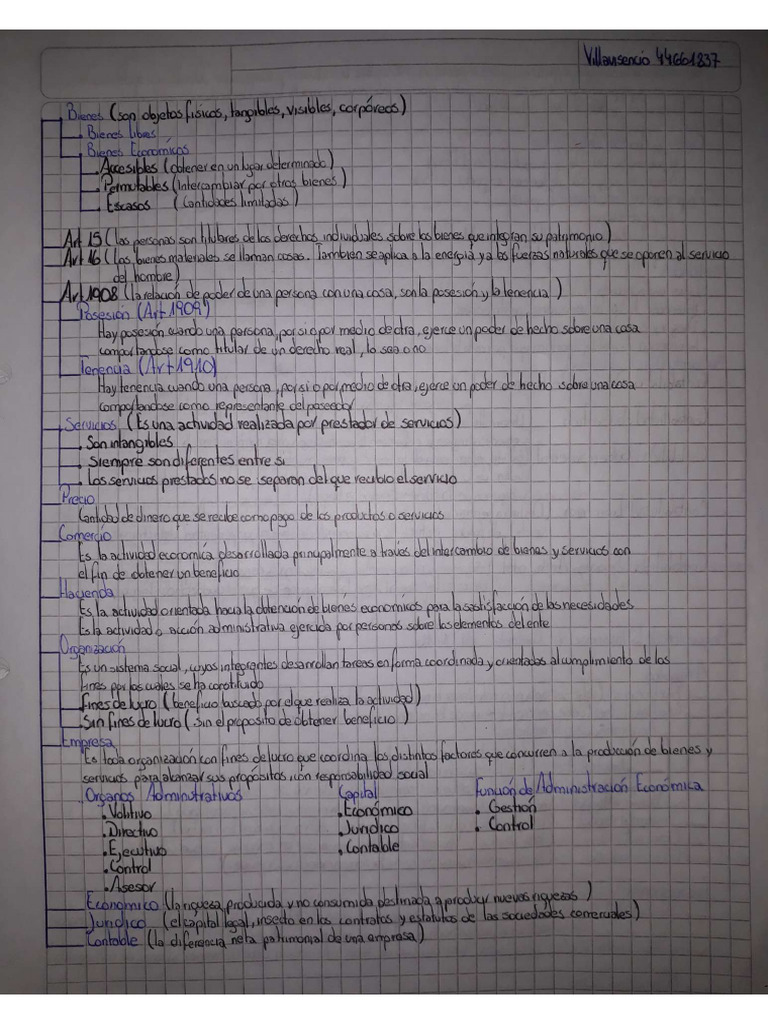 Villavisencio 44661837
Bienes (son objetos fisicos, tangibles, visibles, corpóreos)
Bienes Libres
Bienes Económicos
Accesibles (obtener en un lugar determinado)
Permutables (Intercambiar por otros bienes)
Escasos (Cantidades limitadas)
Art 15 (Las personas son titulares de los derechos individuales sobre los bienes que integran su patrimonio)
Art 16 (Los bienes materiales se llaman cosas. Tambien se aplica a la energia y a las fuerzas naturales que se oponen al servicio
del hombre)
Art 1908 (la relación de poder de una persona con una cosa, son la posesión y la tenencia)
Posesión (Art 1909)
Hay posesión cuando una persona, por si o por medio de otra, ejerce un poder de hecho sobre una cosa
comportandose como titular de un derecho real, lo sea o no
Tenencia (Art 1910)
Hay tenencia cuando una persona, por si o por medio de otra, ejerce un poder de hecho sobre una cosa
comportandose como representante del poseedor
Servicios (Es una actividad realizada por prestador de servicios)
Son intangibles
Siempre son diferentes entre si
Los servicios prestados no se separan del que recibio el servicio
Precio
Cantidad de dinero que se recibe como pago de los productos o servicios
Comercio
Es la actividad economica desarrollada principalmente a través del intercambio de bienes y servicios con
el fin de obtener un beneficio
Hacienda
Es la actividad orientada hacia la obtención de bienes economicos para la satisfacción de las necesidades
Es la actividad o acción administrativa ejercida por personas sobre los elementos del ente
Organización
Es un sistema social, cuyos integrantes desarrollan tareas en forma coordinada y orientados al cumplimiento de los
fines por los cuales se ha constituido
Fines de lucro (beneficio buscado por el que realiza la actividad)
Sin fines de lucro (Sin el proposito de obtener beneficio)
Empresa
Es toda organización con fines de lucro que coordina los distintos factores que concurren a la producción de bienes y
servicios para alcanzar sus propósitos, con responsabilidad social
Organos Administrativos Capital Función de Administración Económica
• Volitivo • Económico • Gestión
• Directivo • Juridico • Control
• Ejecutivo • Contable
• Control
• Asesor
Economico (la riqueza producida y no consumida destinada a producir nuevas riquezas)
Juridico (el cápital legal, inserto en los contratos y estatutos de las sociedades comerciales)
Contable (la diferencia neta patrimonial de una empresa)